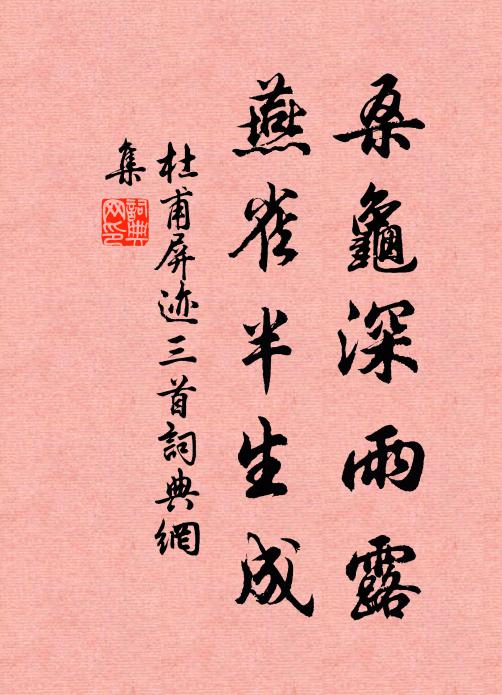 桑龜深雨露
燕雀半生成
杜甫屏迹三首詞典網
集
詞典
网印